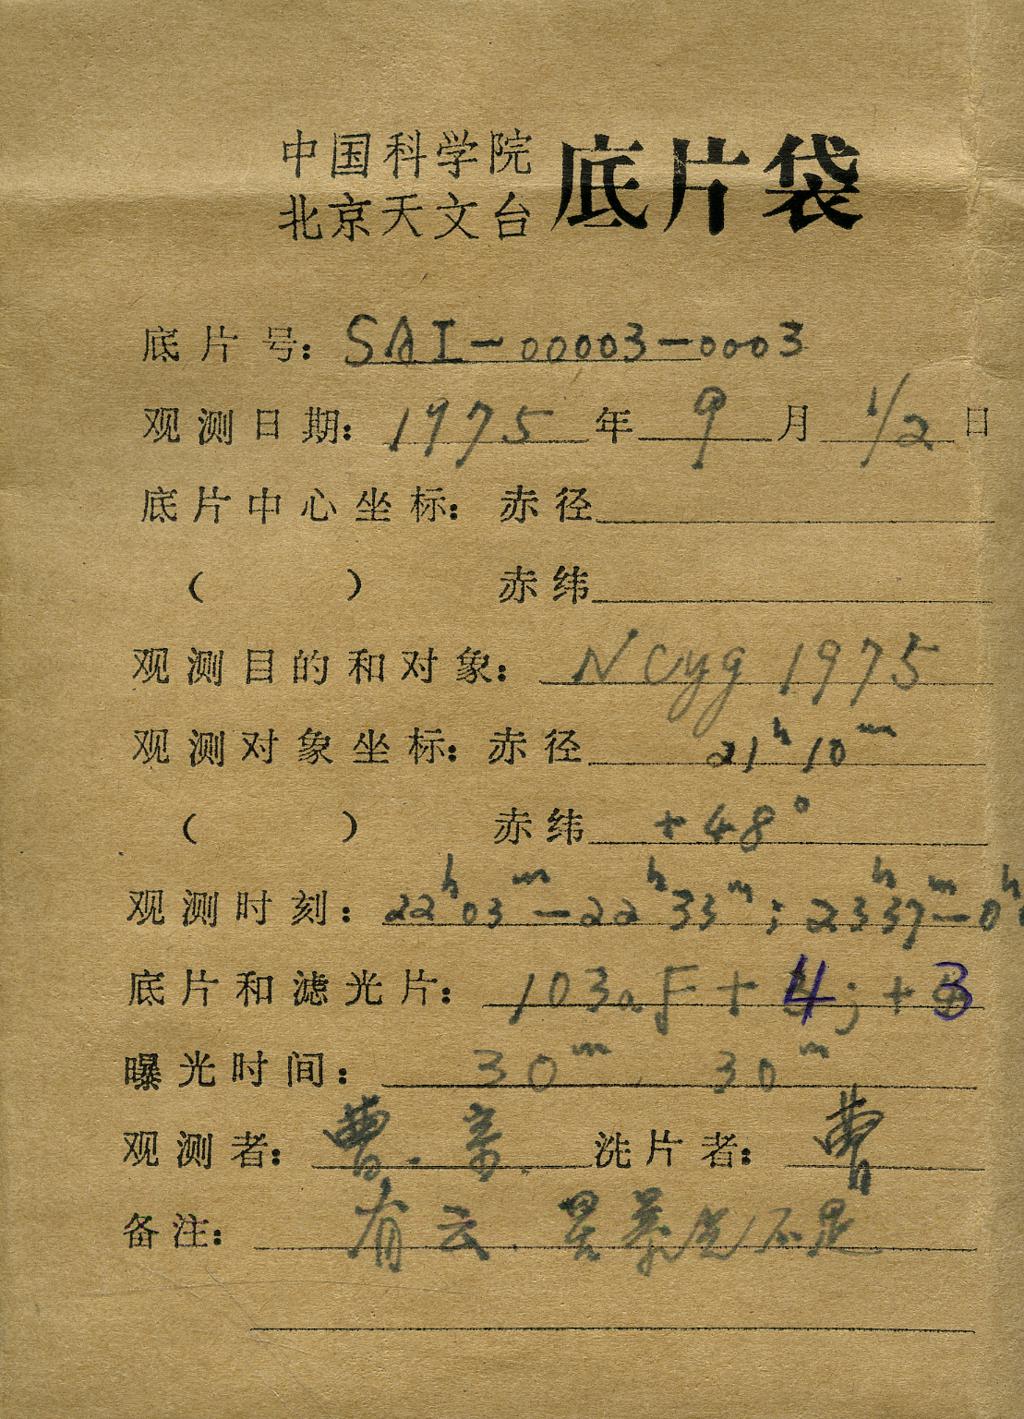 中国科学院
北京天文台
底片袋
底片号：SAI-00003-0003
观测日期：1975年9月1/2日
底片中心坐标：赤径
（ ） 赤纬
观测目的和对象：N Cyg 1975
观测对象坐标：赤径 21h 10m
（ ） 赤纬 +48°
观测时刻：22h03m-22h33m；23h37m-0h
底片和滤光片：103aF+4；+3
曝光时间：30m 30m
观测者：曹. 洗片者：曹
备注：有云.星暴光不足